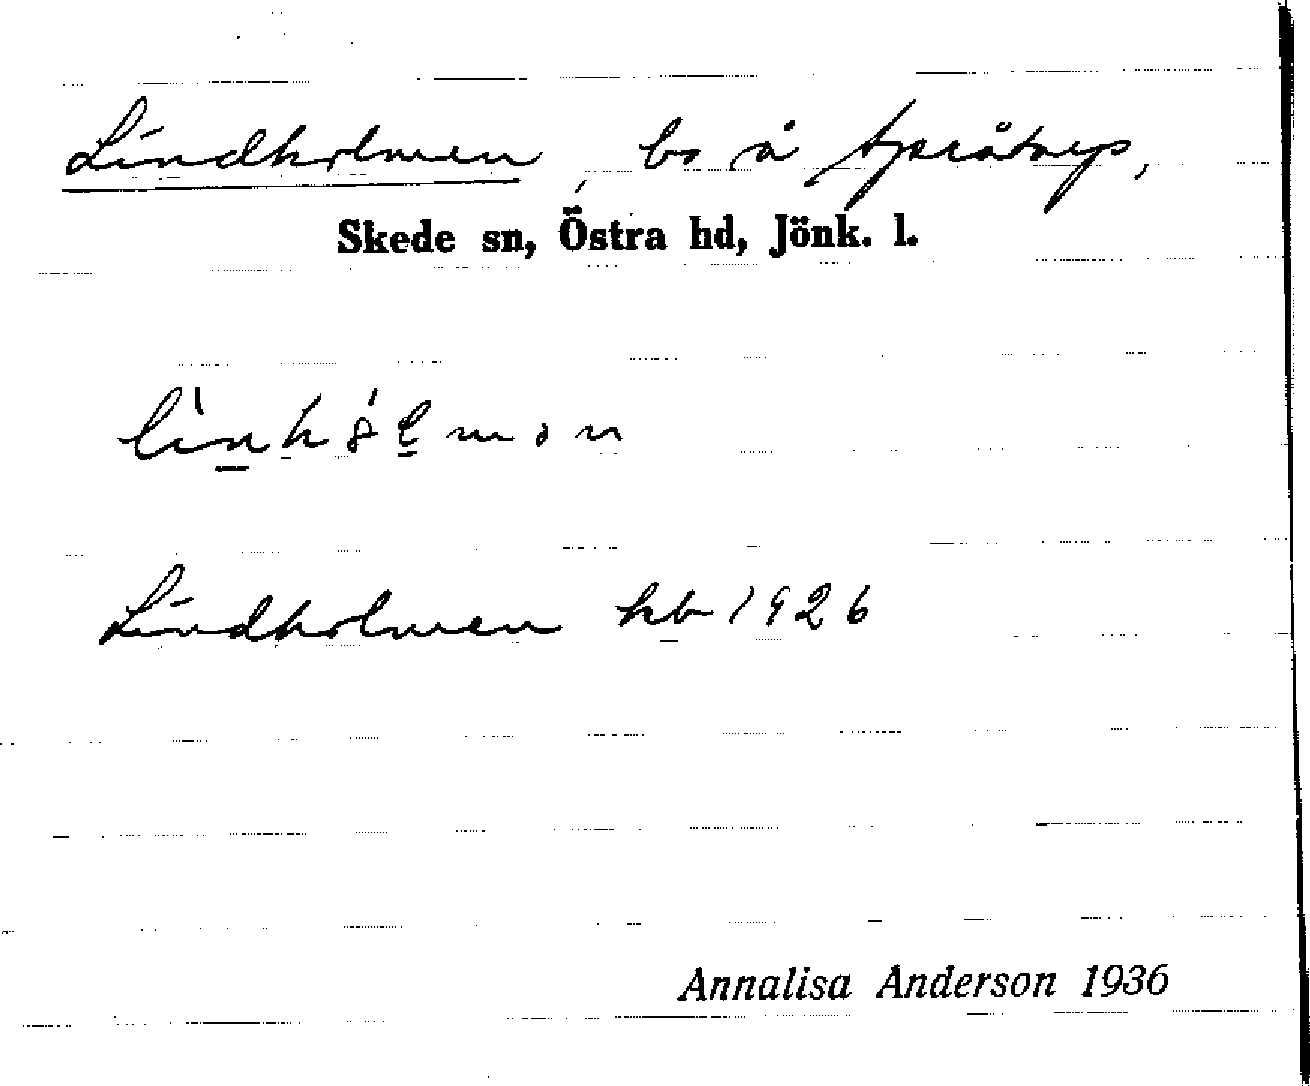 Lindholmen, bo å Språtorp,
Skede sn, Östra hd, Jönk. l.
Lindholmen kb 1926
Annalisa Anderson 1936